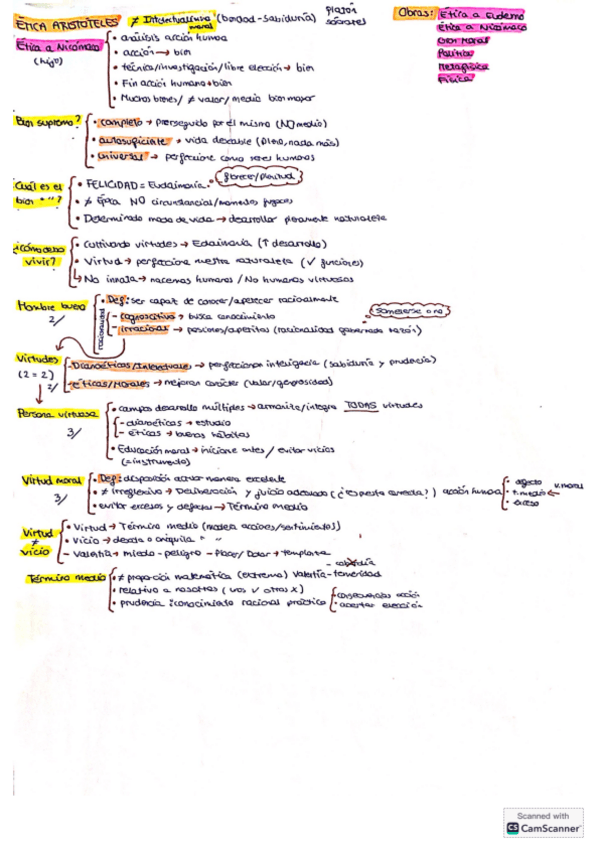 ÉTICA ARISTÓTELES ≠ Intelectualismo moral (bondad-sabiduría) Platón Sócrates
Obras: Ética a Eudemo
Ética a Nicómaco
Gran Moral
Política
Metafísica
Física
Ética a Nicómaco (hijo)
• análisis acción humana
• acción → bien
• técnica/investigación/libre elección → bien
• Fin acción humana → bien
• Muchos bienes/ ≠ valor/ medio bien mayor
Bien supremo?
• completo → perseguido por él mismo (NO medio)
• autosuficiente → vida deseable (plena, nada más)
• universal → perfeccione como seres humanos
Cuál es el bien " "?
• FELICIDAD = Eudaimonía. florecer/plenitud
• ≠ Época NO circunstancial/momentos fugaces
• Determinado modo de vida → desarrollar plenamente naturaleza
¿Cómo debo vivir?
• Cultivando virtudes → Eudaimonía (↑ desarrollo)
• Virtud → perfecciona nuestra naturaleza (✓ funciones)
↳ No innata → nacemos humanos / No humanos virtuosos
Hombre bueno 2/
racionalidad
• Def: ser capaz de conocer/apetecer racionalmente
- cognoscitiva → busca conocimiento
- irracional → pasiones/apetitos (racionalidad gobernada razón)
someterse o no
Virtudes (2 = 2) 2/
- Dianoéticas/Intelectuales → perfeccionan inteligencia (sabiduría y prudencia)
- éticas/Morales → mejoran carácter (valor/generosidad)
Persona virtuosa 3/
• campos desarrollo múltiples → armoniza/integra TODAS virtudes
- dianoéticas → estudio
- éticas → buenos hábitos
• Educación moral → inicione antes / evitar vicios
(= instrumento)
Virtud moral 3/
• Def: disposición actuar manera excelente
• ≠ irreflexivo → Deliberación y juicio adecuado (¿respuesta correcta?) acción humana
• defecto
• t.medio ← v.moral
• exceso
• evitar excesos y defectos → Término medio
Virtud ≠ vicio
• Virtud → Término medio (modera acciones/sentimientos)
• Vicio → desvía o aniquila " "
- Valentía → miedo - peligro - Placer/Dolor → templanza
- cobardía
Término medio
• ≠ proporción matemática (extremo) valentía - temeridad
• relativo a nosotros (unos ✓ otros X)
• prudencia: conocimiento racional práctico
- consecuencias acción
• acertar elección
Scanned with
CS CamScanner